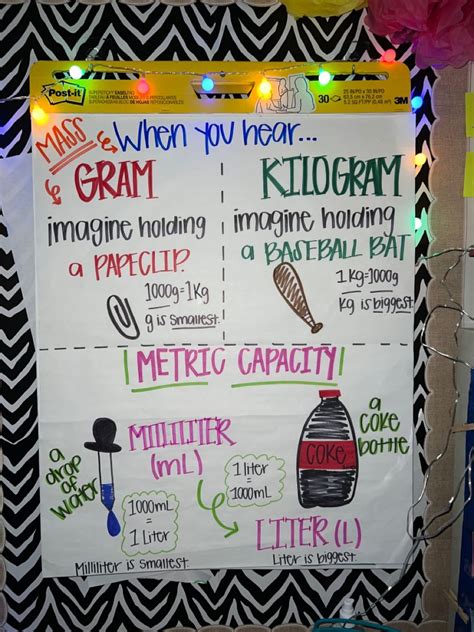 Post-it
30
3M
MASS
When you hear...
GRAM
imagine holding
a PAPECLIP.
1000g-1Kg
g is smallest.
KILOGRAM
imagine holding
a BASEBALL BAT
1Kg-1000g
Kg is biggest.
METRIC CAPACITY
a drop of water
MILLILITER
(mL)
1000mL
=
1 Liter
Milliliter is smallest.
1 liter
=
1000mL
COKE
a
coke
bottle
LITER (L)
Liter is biggest.